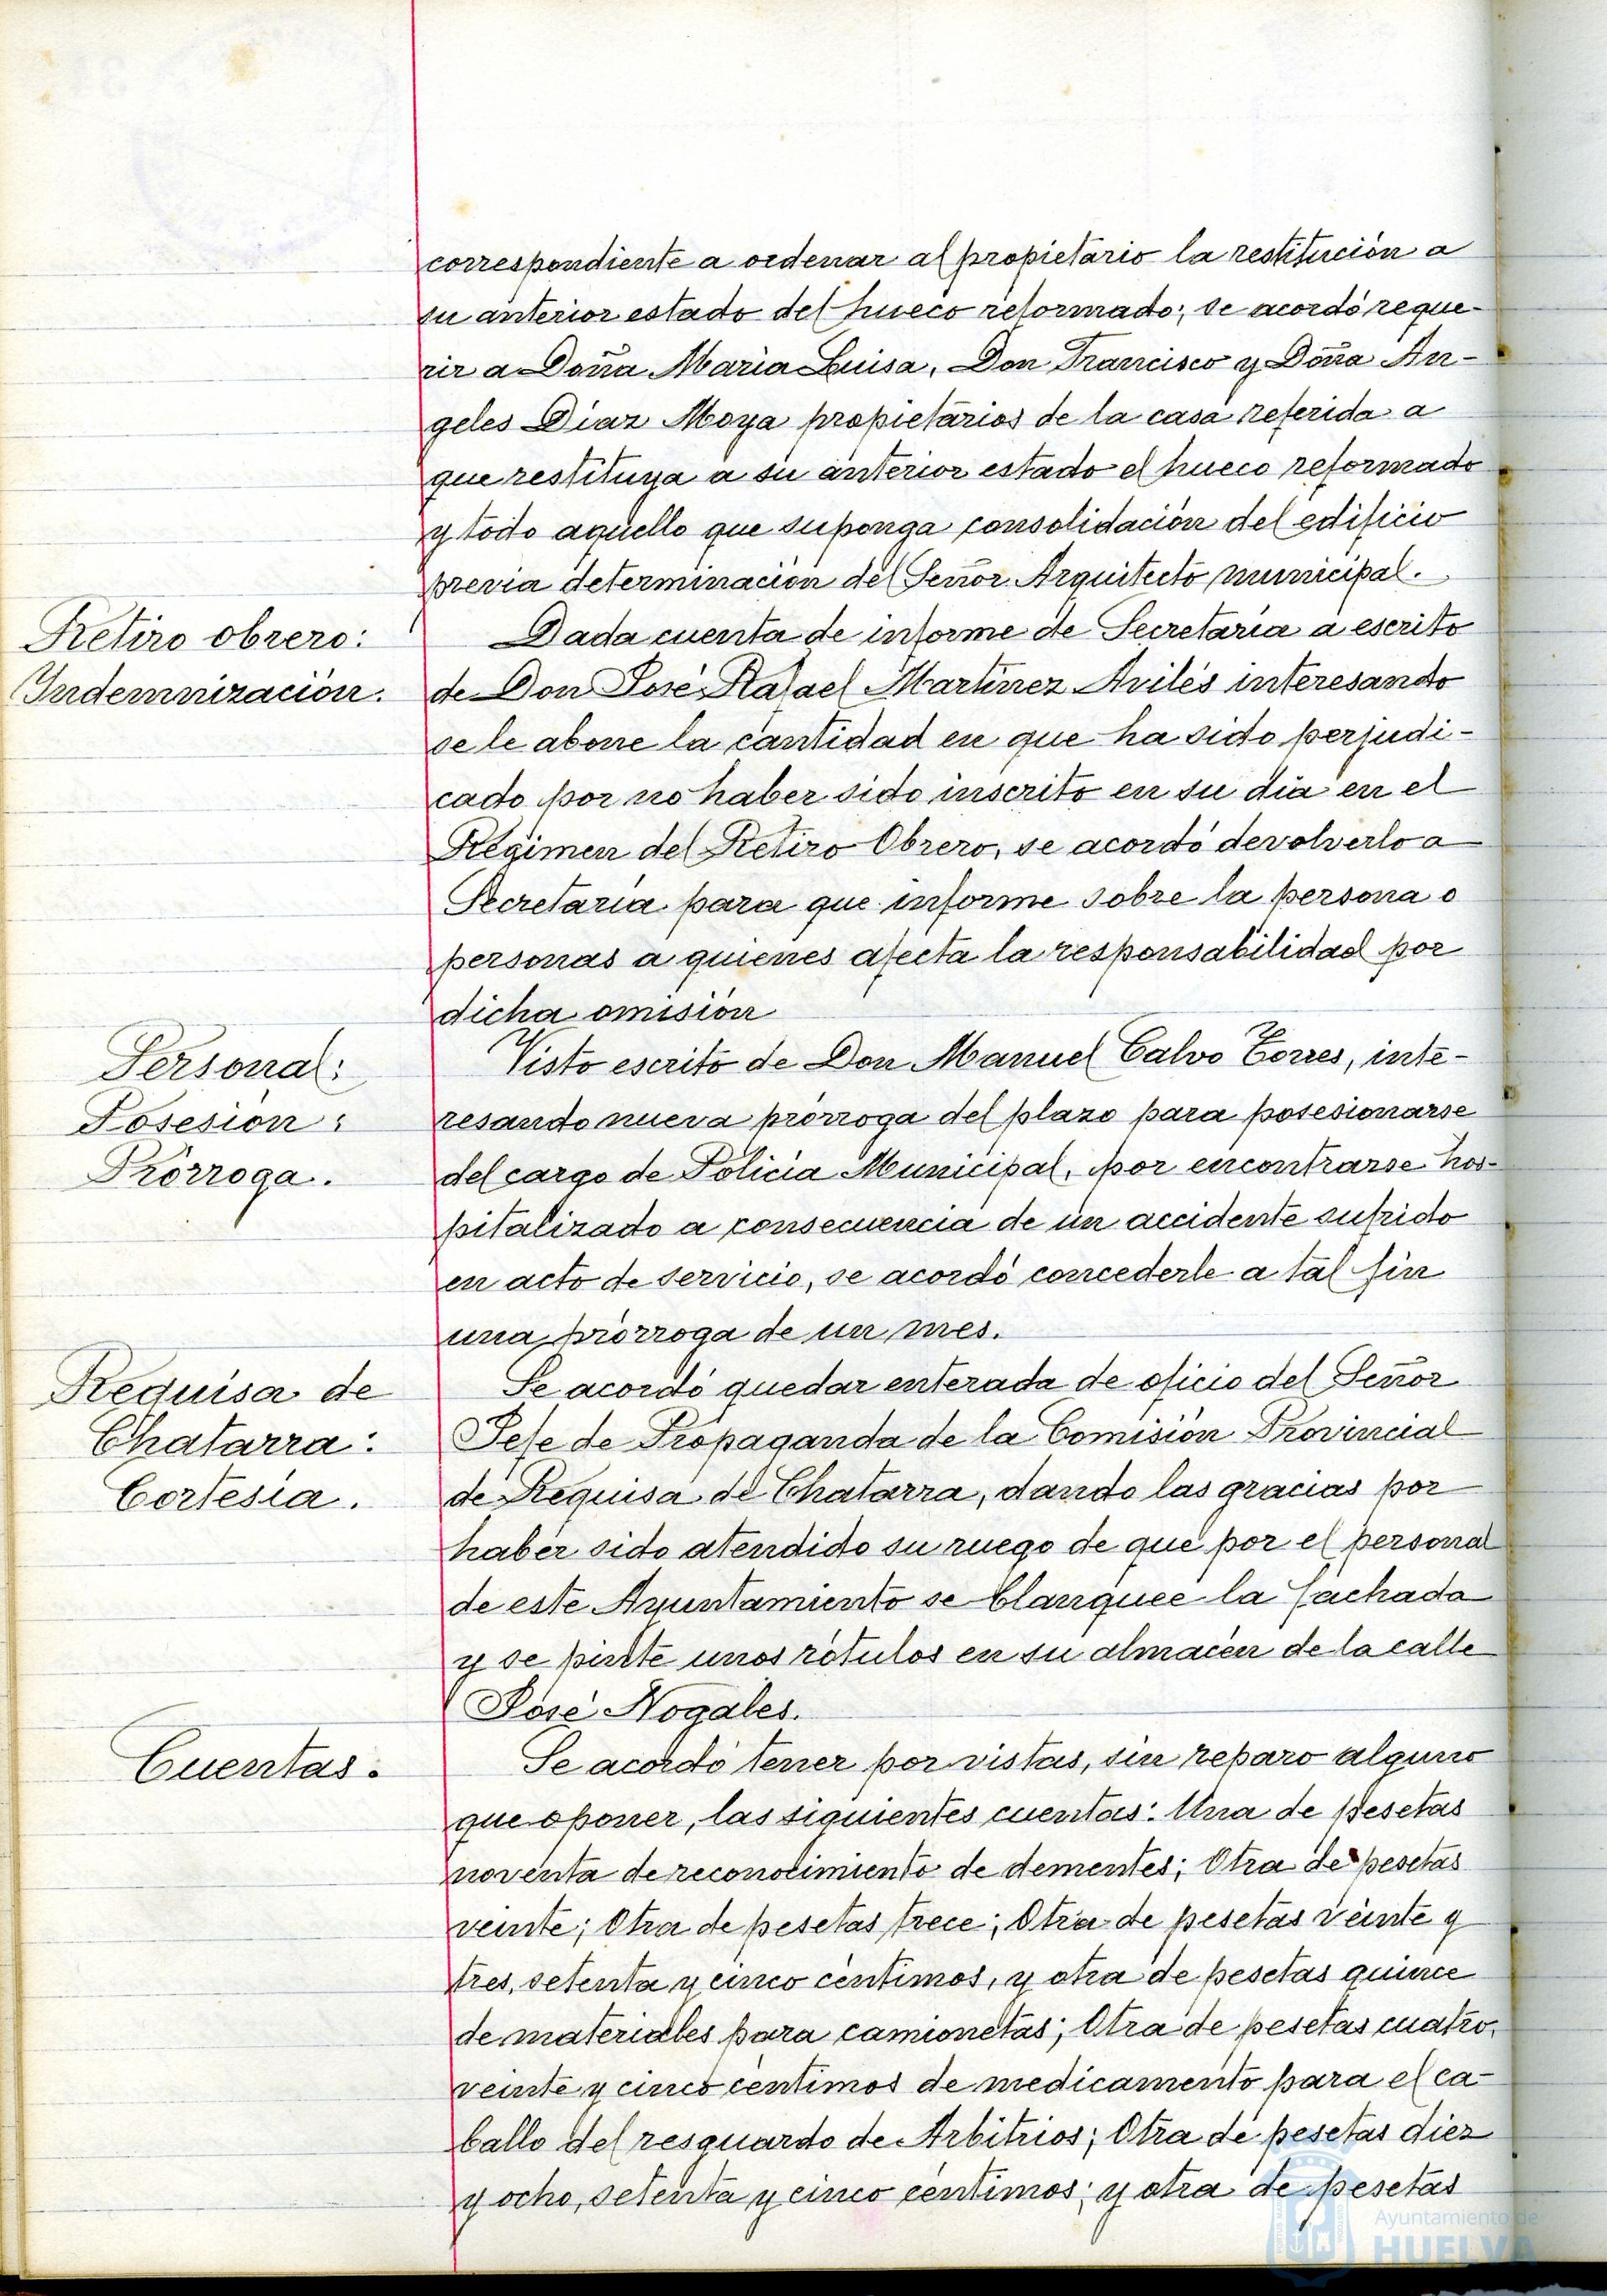 correspondiente a ordenar al propietario la restitución a
su anterior estado del hueco reformado; se acordó reque-
rir a Doña María Luisa, Don Francisco y Doña An-
geles Díaz Moya propietarios de la casa referida a
que restituya a su anterior estado el hueco reformado
y todo aquello que suponga consolidación del edificio
previa determinación del Señor Arquitecto municipal.
Retiro obrero:
Indemnización.
Dada cuenta de informe de Secretaría a escrito
de Don José Rafael Martínez Avilés interesando
se le abone la cantidad en que ha sido perjudi-
cado por no haber sido inscrito en su día en el
Régimen del Retiro Obrero, se acordó devolverlo a
Secretaría para que informe sobre la persona o
personas a quienes afecta la responsabilidad por
dicha omisión
Personal:
Posesión:
Prórroga.
Visto escrito de Don Manuel Calvo Torres, inte-
resando nueva prórroga del plazo para posesionarse
del cargo de Policía Municipal, por encontrarse hos-
pitalizado a consecuencia de un accidente sufrido
en acto de servicio, se acordó concederle a tal fin
una prórroga de un mes.
Requisa de
Chatarra:
Cortesía.
Se acordó quedar enterada de oficio del Señor
Jefe de Propaganda de la Comisión Provincial
de Requisa de Chatarra, dando las gracias por
haber sido atendido su ruego de que por el personal
de este Ayuntamiento se blanquee la fachada
y se pinte unos rótulos en su almacén de la calle
José Nogales.
Cuentas:
Se acordó tener por vistas, sin reparo alguno
que oponer, las siguientes cuentas: Una de pesetas
noventa de reconocimiento de dementes; Otra de pesetas
veinte; Otra de pesetas trece; Otra de pesetas veinte y
tres, setenta y cinco céntimos, y otra de pesetas quince
de materiales para camionetas; Otra de pesetas cuatro,
veinte y cinco céntimos de medicamento para el ca-
ballo del resguardo de Arbitrios; Otra de pesetas diez
y ocho, setenta y cinco céntimos; y otra de pesetas
Ayuntamiento de
HUELVA